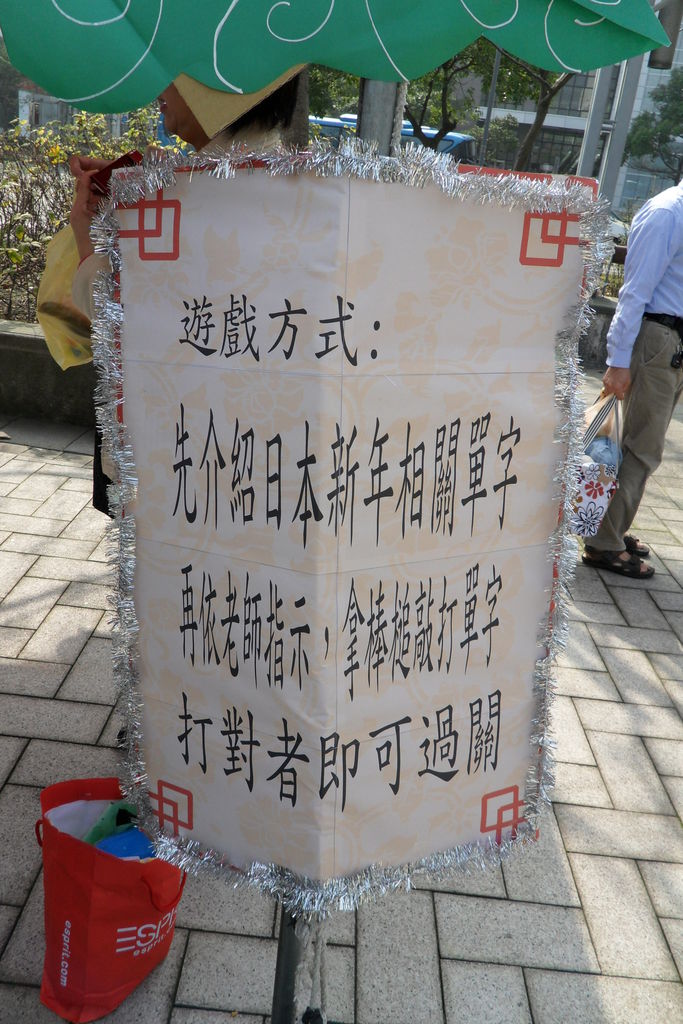 遊戲方式：
先介紹日本新年相關單字
再依老師指示，拿棒槌敲打單字
打對者即可過關
esprit.com